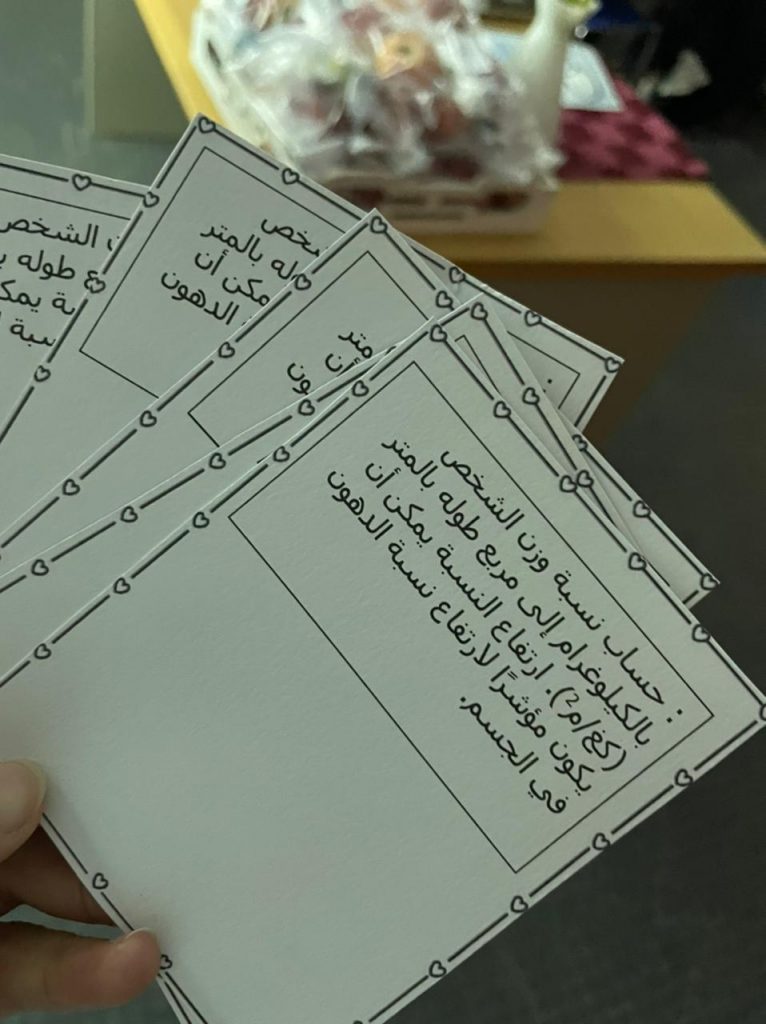 : حساب نسبة وزن الشخص
بالكيلوغرام إلى مربع طوله بالمتر
(كغ/م²). ارتفاع النسبة يمكن أن
يكون مؤشرًا لارتفاع نسبة الدهون
في الجسم.
متر
أن
الشخص
له بالمتر
مكن أن
الدهون
الشخص
طوله